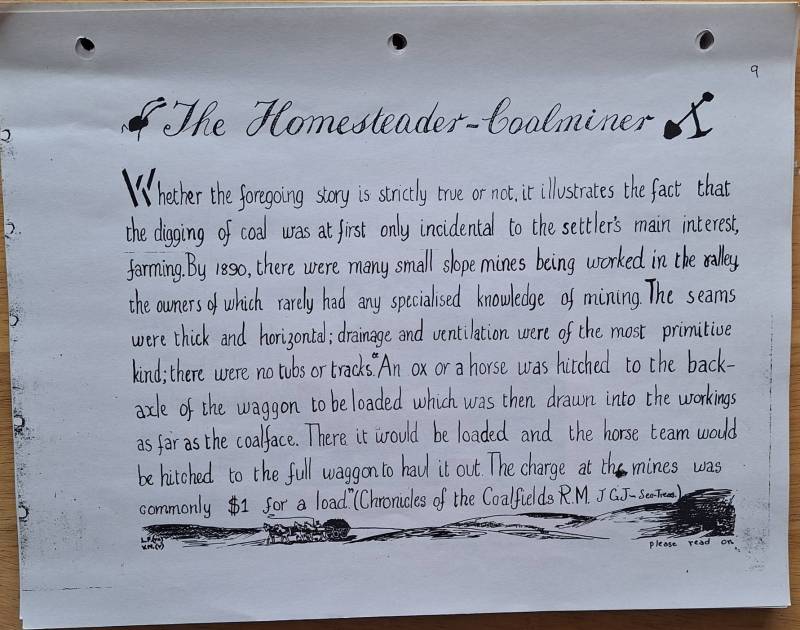 9
The Homesteader-Coalminer
Whether the foregoing story is strictly true or not, it illustrates the fact that
the digging of coal was at first only incidental to the settler's main interest,
farming. By 1890, there were many small slope mines being worked in the valley
the owners of which rarely had any specialised knowledge of mining. The seams
were thick and horizontal; drainage and ventilation were of the most primitive
kind; there were no tubs or tracks. "An ox or a horse was hitched to the back-
axle of the waggon to be loaded which was then drawn into the workings
as far as the coalface. There it would be loaded and the horse team would
be hitched to the full waggon to haul it out. The charge at the mines was
commonly $1 for a load." (Chronicles of the Coalfields R.M. J G J- Sec-Treas.)
please read on